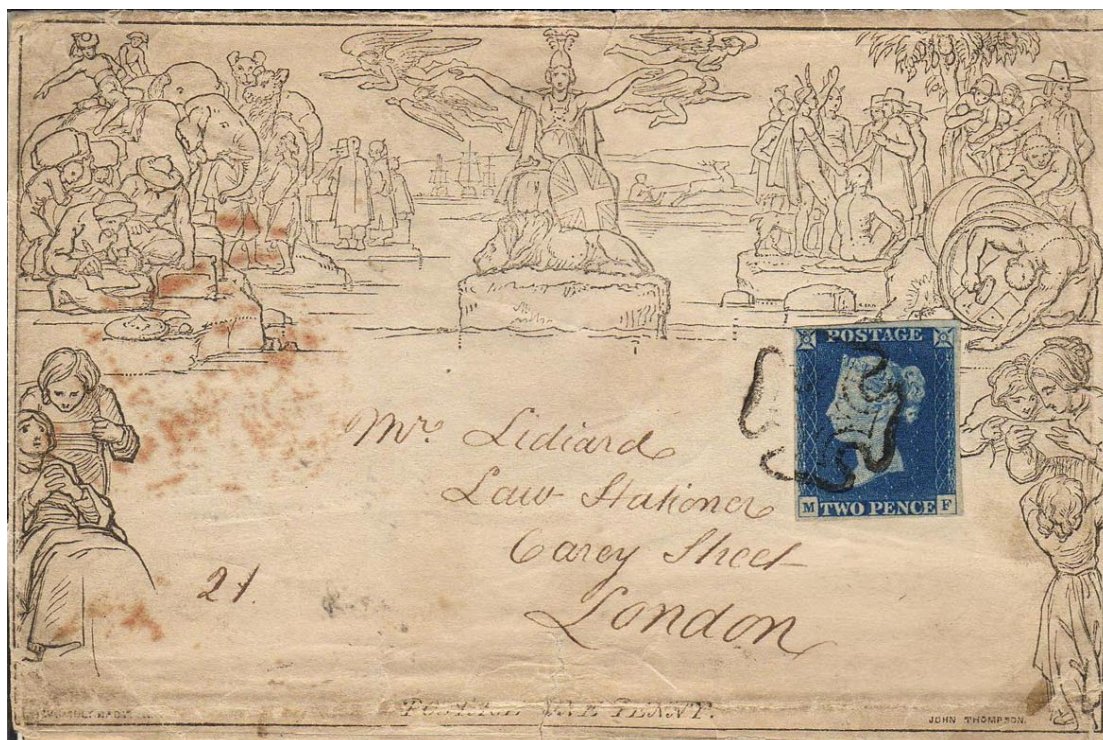 POSTAGE
M TWO PENCE F
Mr. Lidiard
Law Stationer
Carey Street
London
21.
POSTAGE ONE PENNY.
JOHN THOMPSON.